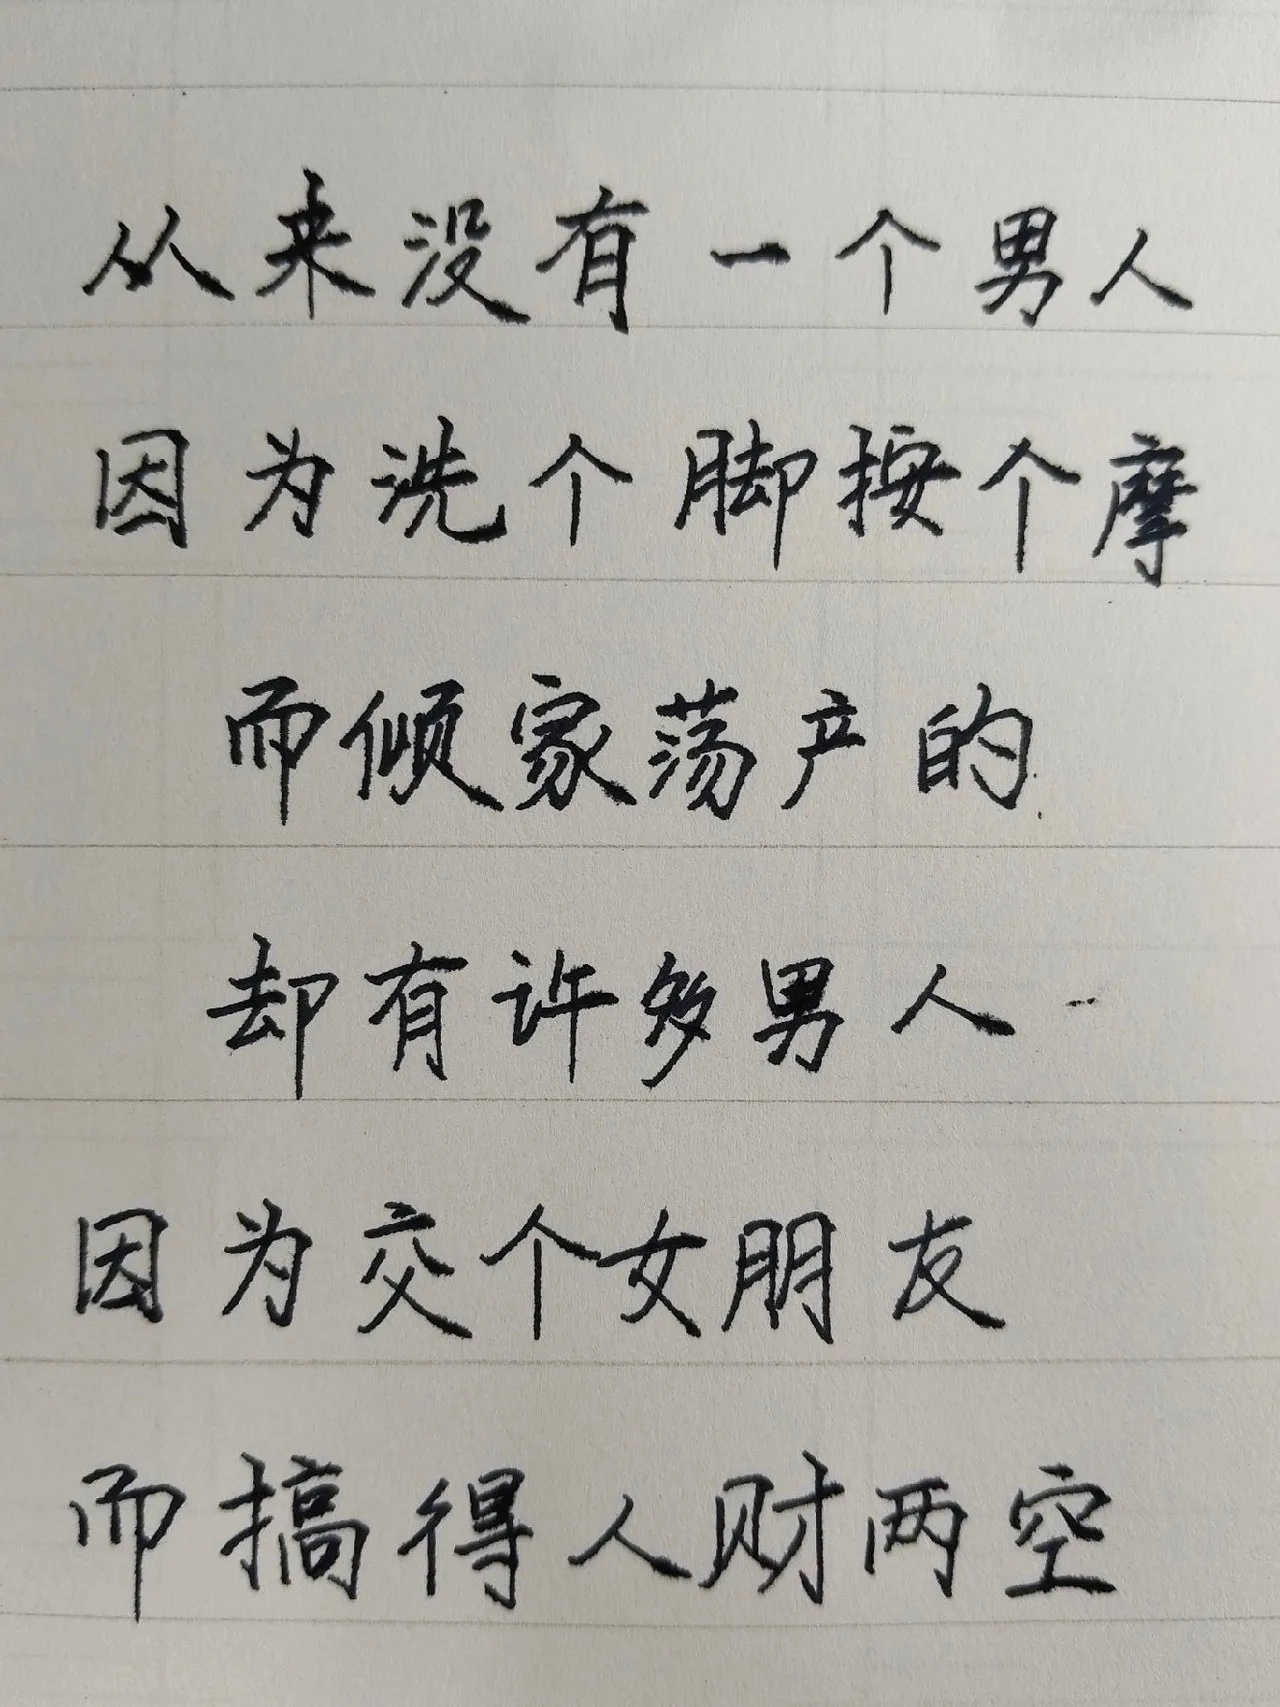 从来没有一个男人
因为洗个脚按个摩
而倾家荡产的
却有许多男人
因为交个女朋友
而搞得人财两空